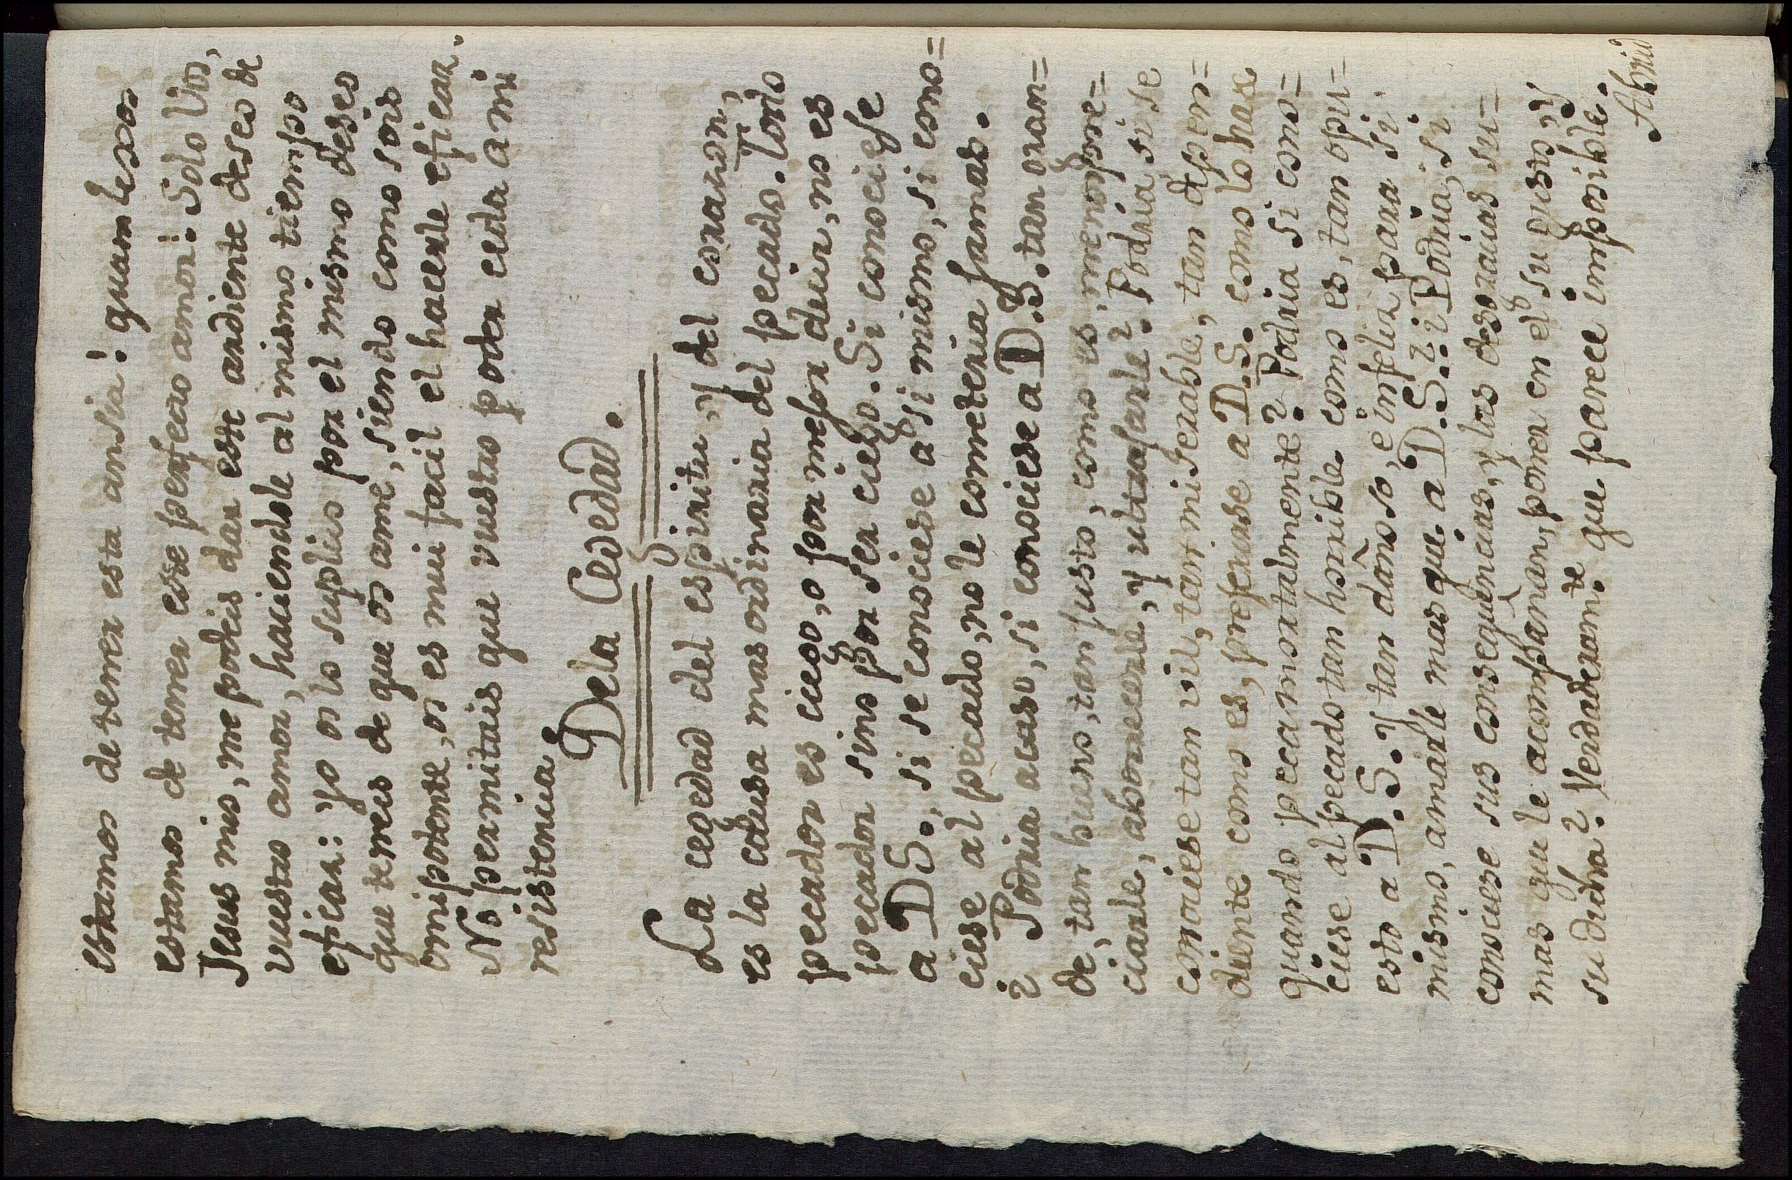 estamos de tener esta ansia! quam lexos
estamos de tener esse perfecto amor! Solo Vos,
Jesus mio, me podeis dar este ardiente deseo de
vuestro amor, haciendole al mismo tiempo
eficaz: yo os lo suplico por el mismo deseo
que teneis de que os ame, siendo como sois
omnipotente, os es mui facil el hacerle eficaz.
No permitais que vuestro poder ceda a mi
resistencia
De la Cegedad.
La cegedad del espiritu, y del corazon,
es la causa mas ordinaria del pecado. Todo
pecador es ciego, o por mejor decir, no es
pecador sino por ser ciego. Si conociese
a D.S., si se conociese a si mismo, si cono=
ciese al pecado, no le cometeria jamas.
¿Podria acaso, si conociese a D.S. tan gran=
de, tan bueno, tan justo, como es, menospre=
ciarle, aborrecerle, y ultrajarle? Podria, si se
conociese tan vil, tan miserable, tan depen=
diente como es, preferirse a D.S. como lo hace
quando peca mortalmente? Podria si cono=
ciese al pecado tan horrible como es, tan opu=
esto a D.S. y tan dañoso, e infeliz para si
mismo, amarle mas que a D.S.? ¿Podria, si
conociese sus consequencias, y las desgracias su=
mas que le acompañan, poner en el su gusto, y
su dicha? Verdaderam.te que parece imposible.
Abrid